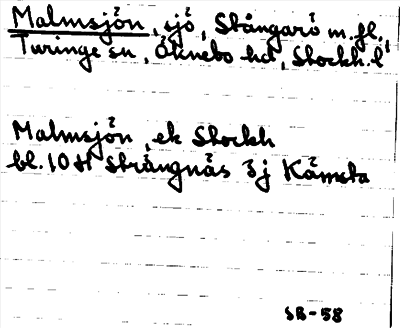 Malmsjön, sjö, Stångarö m. fl.,
Turinge sn, Öknebo hd, Stockh. l
Malmsjön, ek Stockh
bl. 10 St Strängnäs 3j Kämsta
SB-58